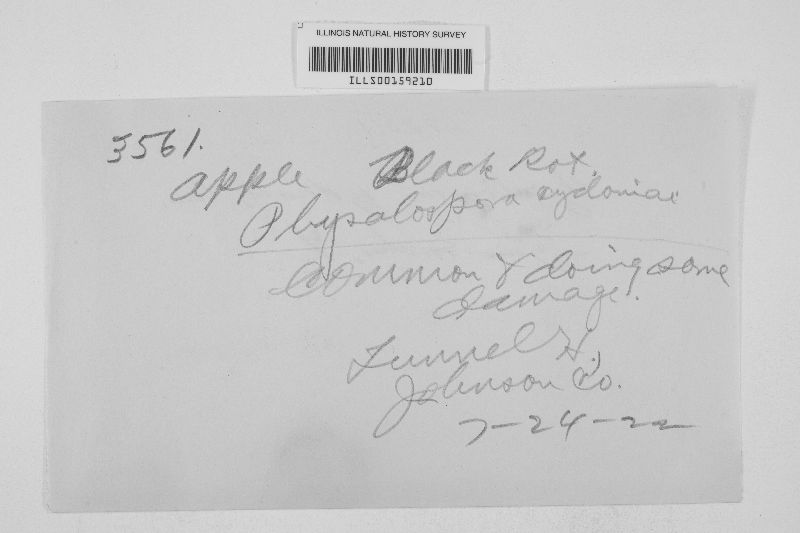 ILLINOIS NATURAL HISTORY SURVEY
ILLS00159210
3561.
apple Black Rot.
Physalospora cydoniae
common & doing some
damage.
Tunnel H.,
Johnson Co.
7-24-22